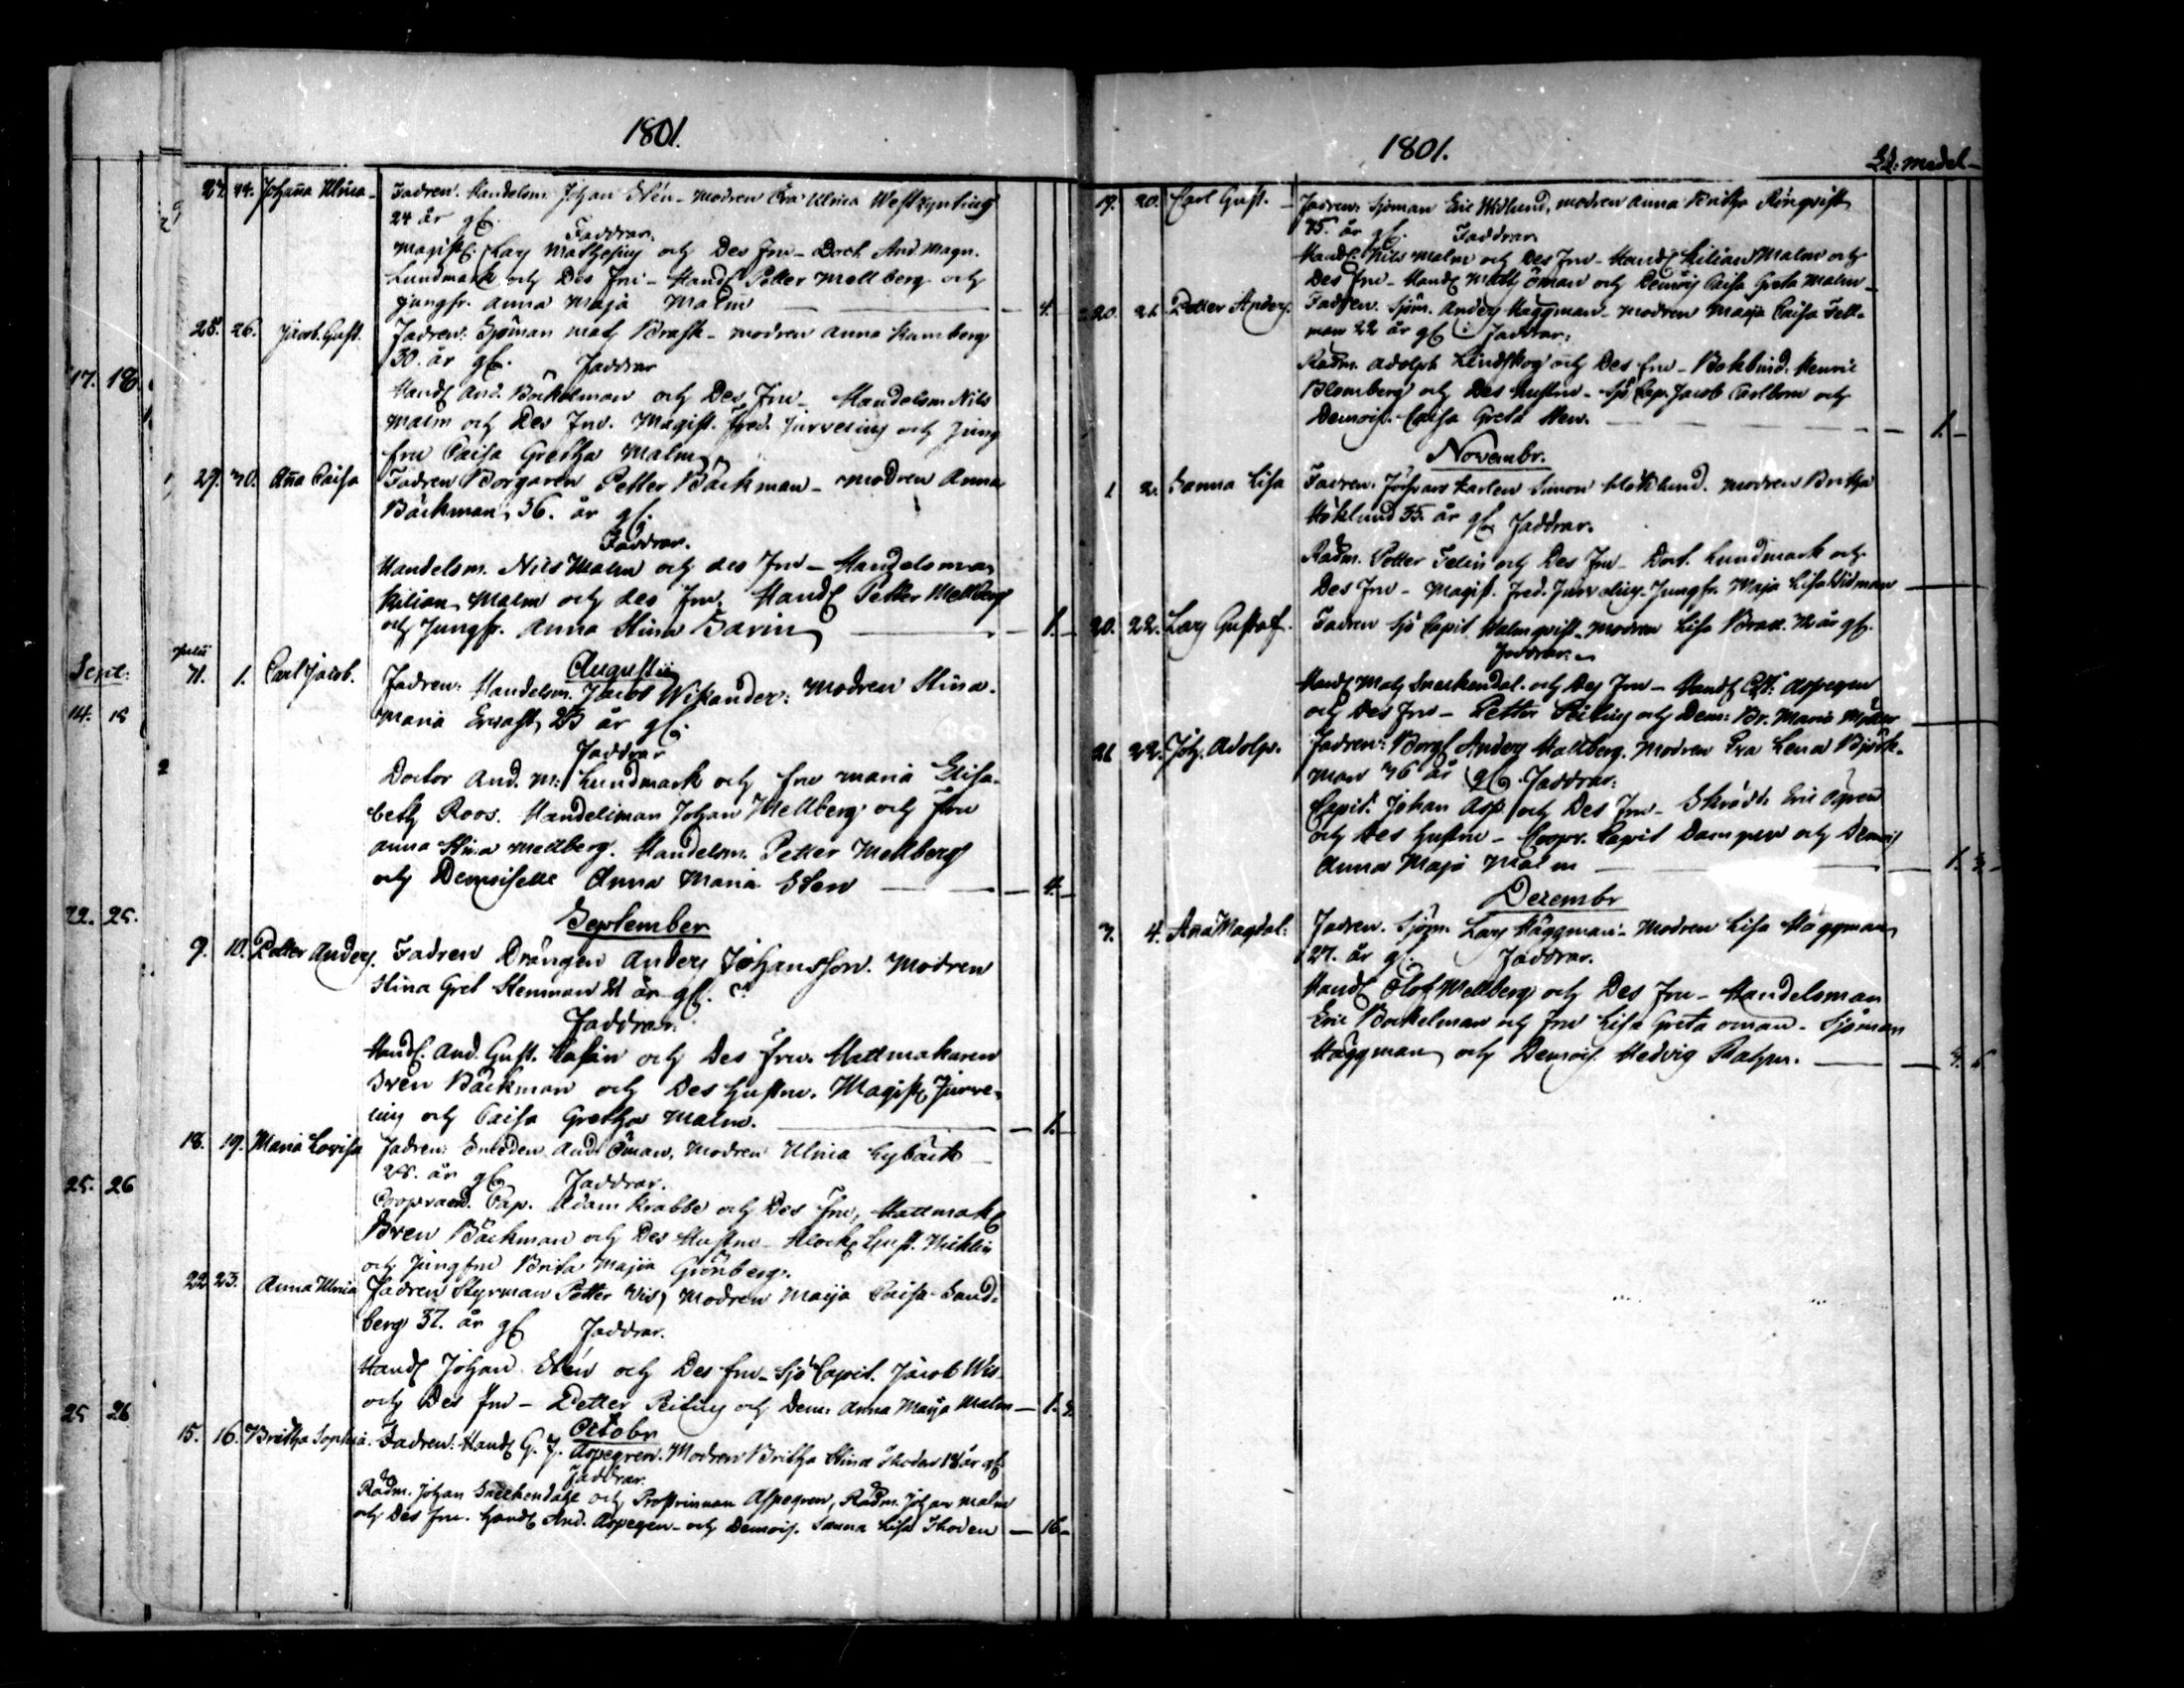 1801.
27. 44. Johanna Ulrica - Fadren. Handelsm. Johan Stén - Modren Eva Ulrica Westzynthius
24 år gl.
Faddrar.
Magist. Lars Mathesius och Des Fru - Doct. And. Magn.
Lundmark och Des Fru - Handl Petter Mellberg och
Jungfr. Anna Maja Malm - 4.
25. 26. Jacob Gust. Fadren: Sjöman Mat Brask - modren Anna Hamberg
30. år gl. Faddrar
Handl And. Böckelman och Des Fru - Handelsm Nils
Malm och Des Fru. Magist. Fred. Jurvelius och Jung
fru Caisa Gretha Malm
29. 30. Aña Caisa Fadren Borgaren Petter Bäckman - modren Anna
Bäckman, 36. år gl.
Faddrar.
Handelsm. Nils Malm och des Fru - Handelsman
Kilian Malm och des Fru. Handl Petter Mellberg
och Jungfr. Anna Stina - 1. -
Julii
Augustii
31. 1. Carl Jacob. Fadren: Handelsm. Jacob Wikander: Modren Stina
Maria 23 år gl.
Faddrar
Doctor And. M: Lundmark och fru Maria Elisa-
beth Roos. Handelsman Johan Mellberg och Fru
Anna Stina Mellberg. Handelsm. Petter Mellberg
och Demoiselle Anna Maria Sten - 4. -
September
9. 10. Petter Anders. Fadren Drängen Anders Johansson. Modren
Stina Gret Stenman 21 år gl.
Faddrar.
Handl. And. Gust. och Des Fru. Hattmakaren
Sven Bäckman och Des Hustru. Magist Jurve-
lius och Caisa Gretha Malm. - 1. -
18. 19. Maria Lovisa Fadren: And Öman, Modren Ulrica Lybäck
28. år gl. Faddrar.
Cap. Adam Krabbe och Des Fru, Hattmak
Sven Bäckman och Des Hustru - Klock Gust.
och Jungfru Brita Majia Grönberg.
22 23. Anna Ulrica Fadren Styrman Petter Wis, Modren Maija Caisa Sand-
berg 37. år gl Faddrar.
Handl Johan Stén och Des fru - Sjö Capit. Jacob Wis
och Des Fru - Petter Reilius och Dem: Anna Maija Malm - 1.
Octobr
15. 16. Britha Sophia. Fadren: Handl G. J. Aspegren. Modren Britha Stina Thoden 18 år gl
Faddrar.
Rådm. Johan Sneckendahl och Prostinnan Aspegren, Rådm. Johan Malm
och Des Fru. Handl And. Aspegen - och Demois. Sanna Lisa Thoden - 16 -
17. 18.
Sept:
14. 18
22. 25.
25. 26
25 26
1801.
medel -
19. 20. Carl Gust. - Fadren: Sjöman Eric Widlund, modren Anna Britha
45. år gl. Faddrar
Handl Nils Malm och Des Fru - Handl Kilian Malm och
Des Fru - Handl Math Öman och Demois Caisa Greta Malm -
20. 21. Petter Anders. Fadren. Sjöm. Anders Häggman - Modren Maja Caisa Fell-
man 22 år gl Faddrar:
Rådm. Adolph Lindskog och Des Fru - Bokbind. Henric
Blomberg och Des Hustru - Sjö Cap. Jacob Carlbom och
Demois. Caisa Greta Sten. - 1. -
Novembr.
1. 2. Sanna Lisa Fadren: Karlen Simon Höklund. modren Britha
Höklund 35. år gl. Faddrar.
Rådm. Petter Felin och Des Fru - Doct. Lundmark och
Des Fru - Magist. Fred. Jurvelius - Jungfr. Maja Lisa Widman -
20. 22. Lars Gustaf. Fadren Sjö Capit Malmqvist - modren Lisa år gl.
Faddrar.
Handl Mats Sneckendal - och Des Fru - Handl Aspegren
och Des Fru - Petter Reilius och Dem: Br. Maria -
21. 22. Joh. Adolph. Fadren: Borg. Anders Hallberg. Modren Eva Lena Björk-
man 36 år gl. Faddrar:
Capit. Johan Asp och Des Fru - Skrädd. Eric Ögren
och Des Hustru - Capit Damgren och Demois
Anna Maja Malm - 1. 3. -
Decembr
3. 4. Aña Magdal: Fadren. Sjöm. Lars Häggman - Modren Lisa Häggman
27. år gl. Faddrar.
Handl Olof Mellberg och Des Fru - Handelsman
Eric Bockelman och Fru Lisa Greta Öman - Sjöman
Häggman och Demois. Hedvig - 4. 6